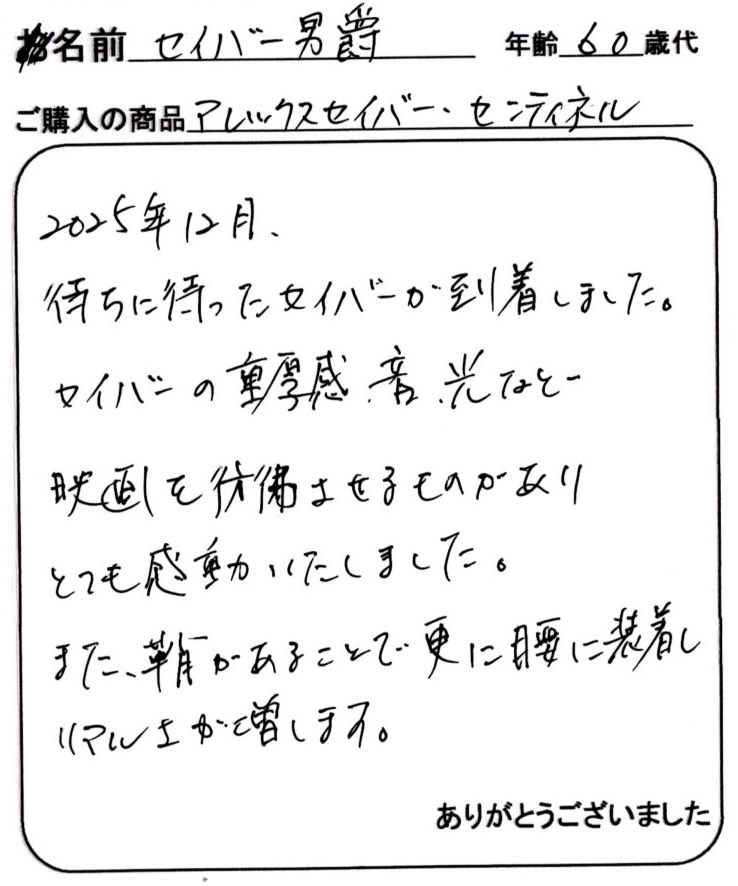 名前 セイバー男爵 年齢 60 歳代
ご購入の商品 アレックスセイバー・センティネル
2025年12月、
待ちに待ったセイバーが到着しました。
セイバーの重厚感、音、光など
映画を彷彿させるものがあり
とても感動いたしました。
また、鞘があることで更に腰に装着し
リアルさが増します。
ありがとうございました